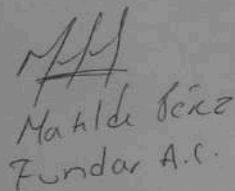 Matilde Pérez
Fundar A.C.